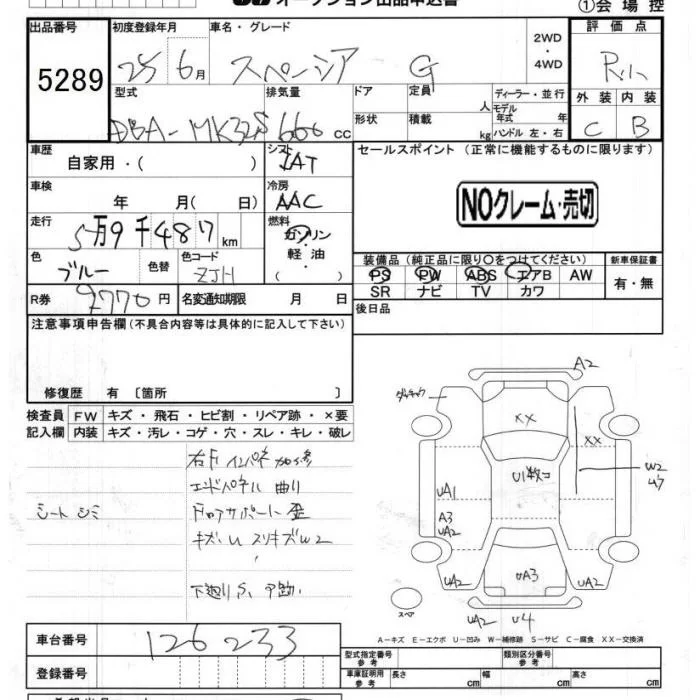 オークション出品申込書
①会場控
出品番号 初度登録年月 車名・グレード 評価点
5289 25年6月 スペーシア G 2WD・4WD
型式 排気量 ドア 定員 人 ディーラー・並行
モデル年式 年
外装 内装
DBA-MK32S 660cc 形状 積載 kg ハンドル 左・右
C B
車歴 シフト セールスポイント (正常に機能するものに限ります)
自家用・( ) IAT
車検 冷房
年 月( 日) AAC
NOクレーム・売切
走行 燃料
5万9千487km ガソリン
色 色替 色コード 軽油・
ブルー ZJH ( )
装備品 (純正品に限り○をつけてください) 新車保証書
PS PW ABS エアB AW 有・無
SR ナビ TV カワ
R券 9770円 名変通知期限 月 日
後日品
注意事項申告欄(不具合内容等は具体的に記入して下さい)
修復歴 有 〔箇所 〕
検査員 FW キズ・飛石・ヒビ割・リペア跡・×要
記入欄 内装 キズ・汚レ・コゲ・穴・スレ・キレ・破レ
右Fインパネ加修
エンドパネル 曲り
シートシミ
キズU スリキズW2
下廻りS、
A2
XX
XX
W2
U数コ
UA1
A3
UA2
UA2
UA3
UA2
UA2
UA2 U4
スペア
A-キズ E-エクボ U-凹み W-補修跡 S-サビ C-腐食 XX-交換済
車台番号 126233
型式指定番号 参考 類別区分番号 参考
登録番号
車庫証明用 参考 長さ cm 幅 cm 高さ cm